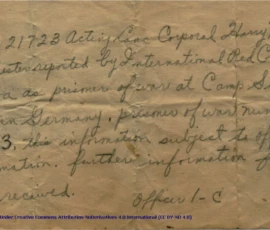 21723 Acting Lance Corporal Harry
reported by International Red C
as prisoner of war at Camp S
Germany, prisoner of war num
3, this information subject to off
mation. further information f
received. Officer I-C
Creative Commons Attribution-NoDerivatives 4.0 International (CC BY-ND 4.0)